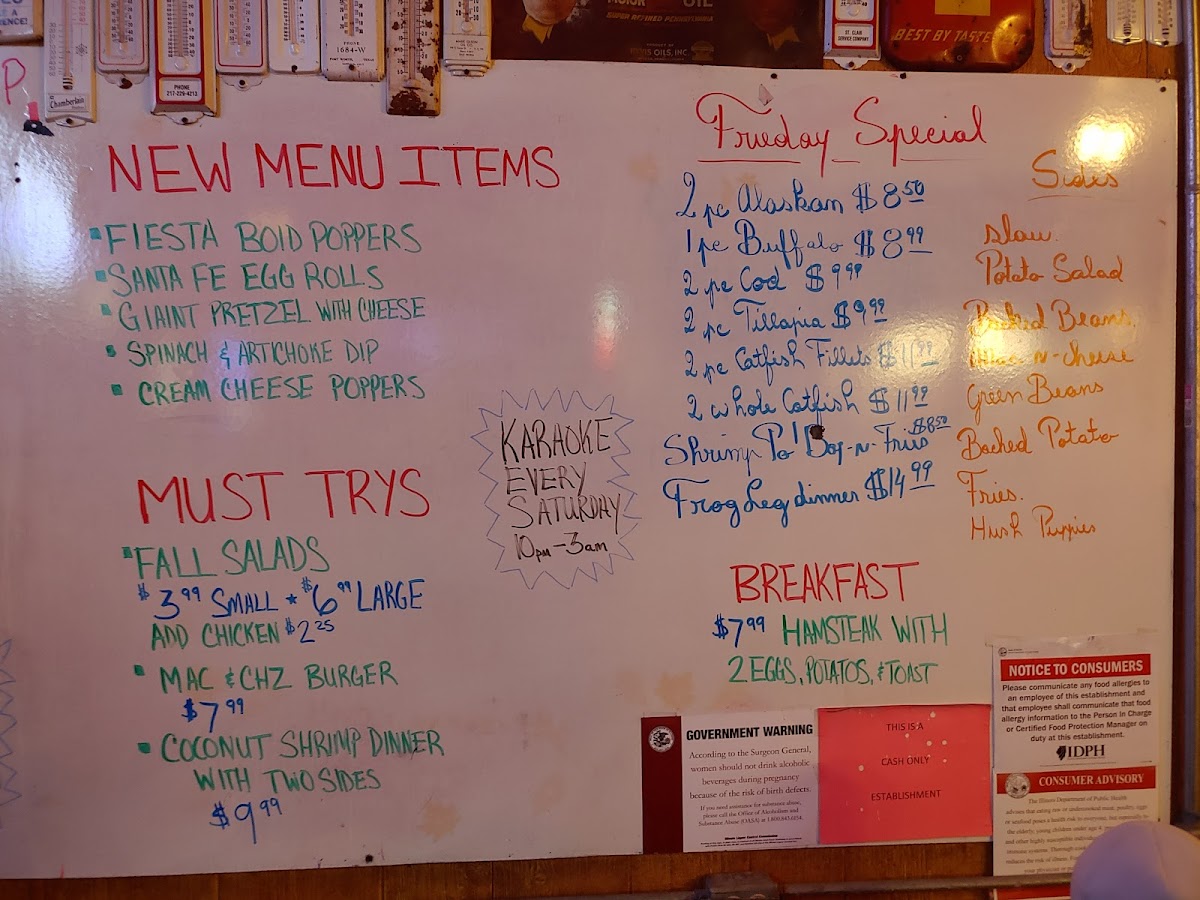 Chamberlain
PHONE
217-229-4213
PHONE
1684-W
MOTOR OIL
SUPER REFINED PENNSYLVANIA
ST. CLAIR
SERVICE COMPANY
BEST BY TASTE
P
NEW MENU ITEMS
FIESTA BOID POPPERS
SANTA FE EGG ROLLS
GIAINT PRETZEL WITH CHEESE
SPINACH & ARTICHOKE DIP
CREAM CHEESE POPPERS
MUST TRYS
FALL SALADS
$3.99 SMALL * $6.99 LARGE
ADD CHICKEN $2.25
MAC & CHZ BURGER
$7.99
COCONUT SHRIMP DINNER
WITH TWO SIDES
$9.99
KARAOKE
EVERY
SATURDAY
10pm-3am
Frieday Special
2 pc Alaskan $8.50
1 pc Buffalo $8.99
2 pc Cod $9.99
2 pc Tillapia $9.99
2 pc Catfish Fillets $11.99
2 whole Catfish $11.99
Shrimp Po' Boy-n-Fries $8.50
Frog Leg dinner $14.99
Sides
slaw.
Potato Salad
Baked Beans.
Mac-n-cheese
Green Beans
Backed Potato
Fries.
Hush Puppies
BREAKFAST
$7.99 HAMSTEAK WITH
2 EGGS, POTATOS, & TOAST
GOVERNMENT WARNING
According to the Surgeon General,
women should not drink alcoholic
beverages during pregnancy
because of the risk of birth defects.
If you need assistance for substance abuse,
please call the Office of Alcoholism and
Substance Abuse (OASA) at 1.800.843.6154.
Illinois Liquor Control Commission
THIS IS A
CASH ONLY
ESTABLISHMENT
NOTICE TO CONSUMERS
Please communicate any food allergies to
an employee of this establishment and
that employee shall communicate that food
allergy information to the Person in Charge
or Certified Food Protection Manager on
duty at this establishment.
IDPH
CONSUMER ADVISORY
The Illinois Department of Public Health
advises that eating raw or undercooked meat, poultry, eggs
or seafood poses a health risk to everyone, but especially to
the elderly, young children under age 4,